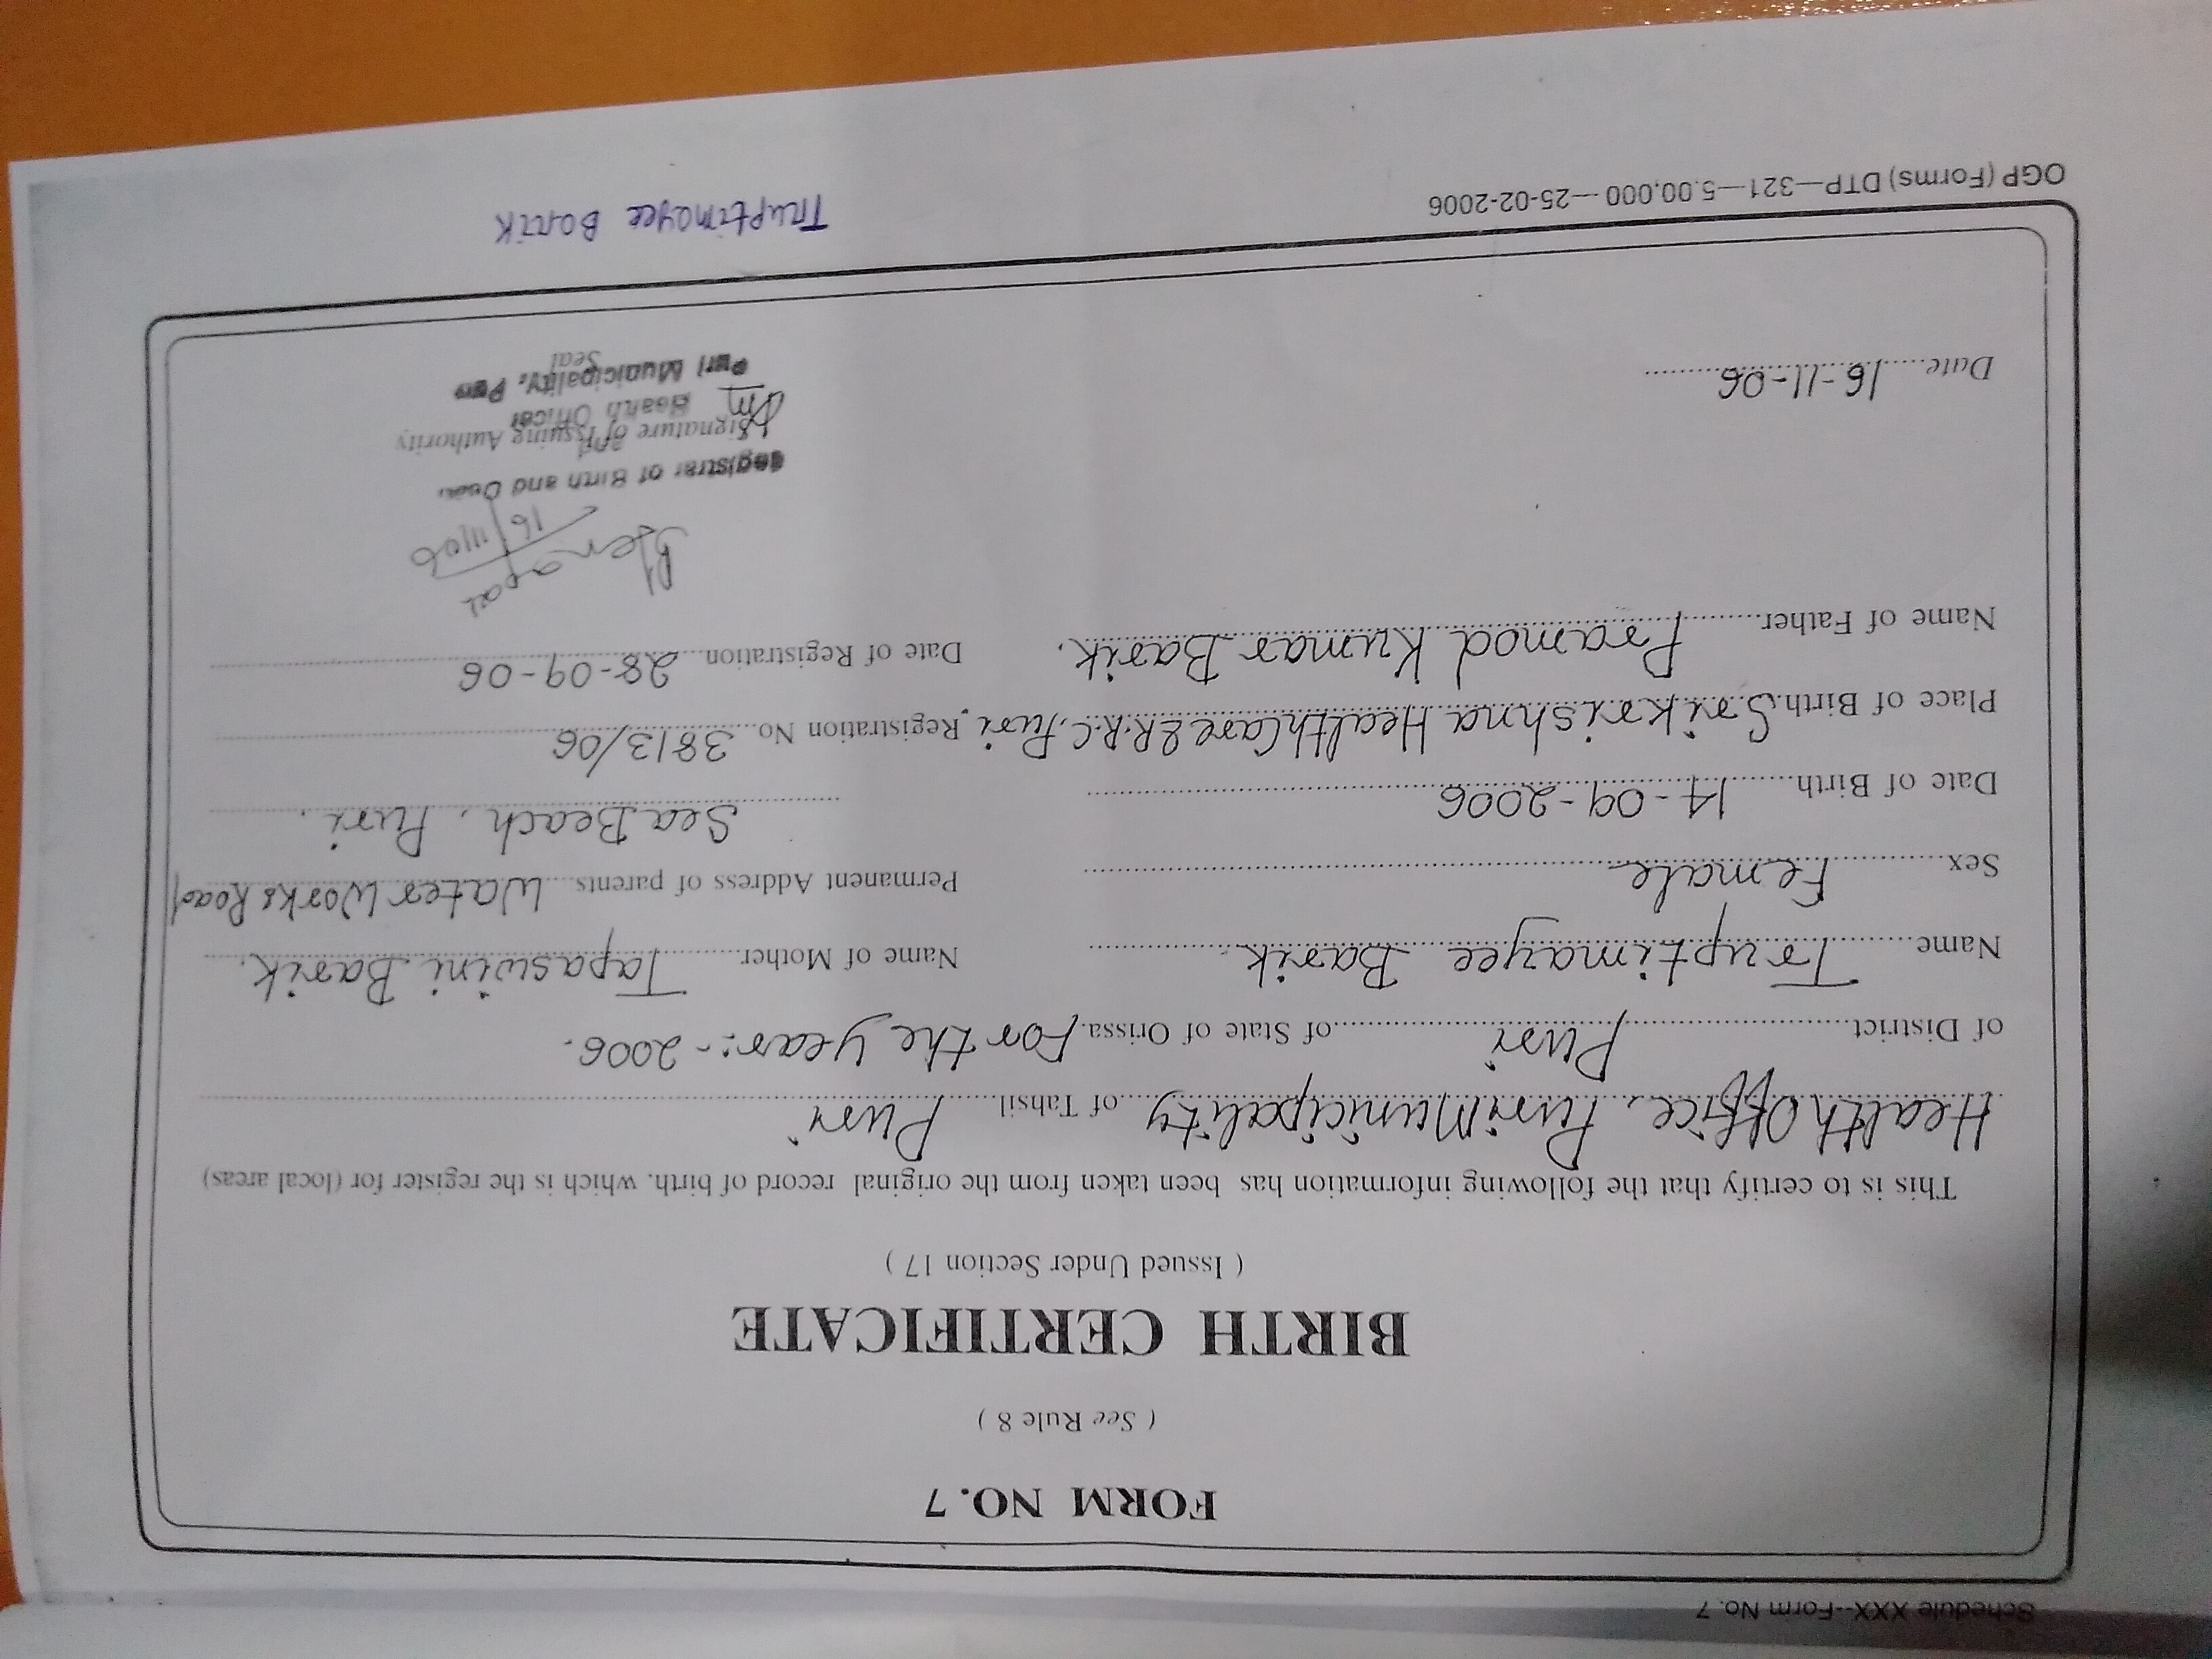 Schedule XXX--Form No. 7
FORM NO. 7
( See Rule 8 )
BIRTH CERTIFICATE
( Issued Under Section 17 )
This is to certify that the following information has been taken from the original record of birth. which is the register for (local areas)
Health Office, Puri Municipality of Tahsil Puri
of District Puri of State of Orissa For the year:- 2006.
Name Truptimayee Barik
Sex Female
Date of Birth 14-09-2006
Place of Birth Srikrishna HealthCare & R.R.C. Puri.
Name of Father Pramod Kumar Barik.
Name of Mother Tapaswini Barik.
Permanent Address of parents Water Works Road
Sea Beach, Puri.
Registration No. 3813/06
Date of Registration 28-09-06
16/11/06
Registrar of Birth and
Signature of Issuing Authority
and
Health Officer
Puri Municipality, Puri
Seal
Date 16-11-06
OGP (Forms) DTP—321—5.00,000—25-02-2006
Truptimayee Barik